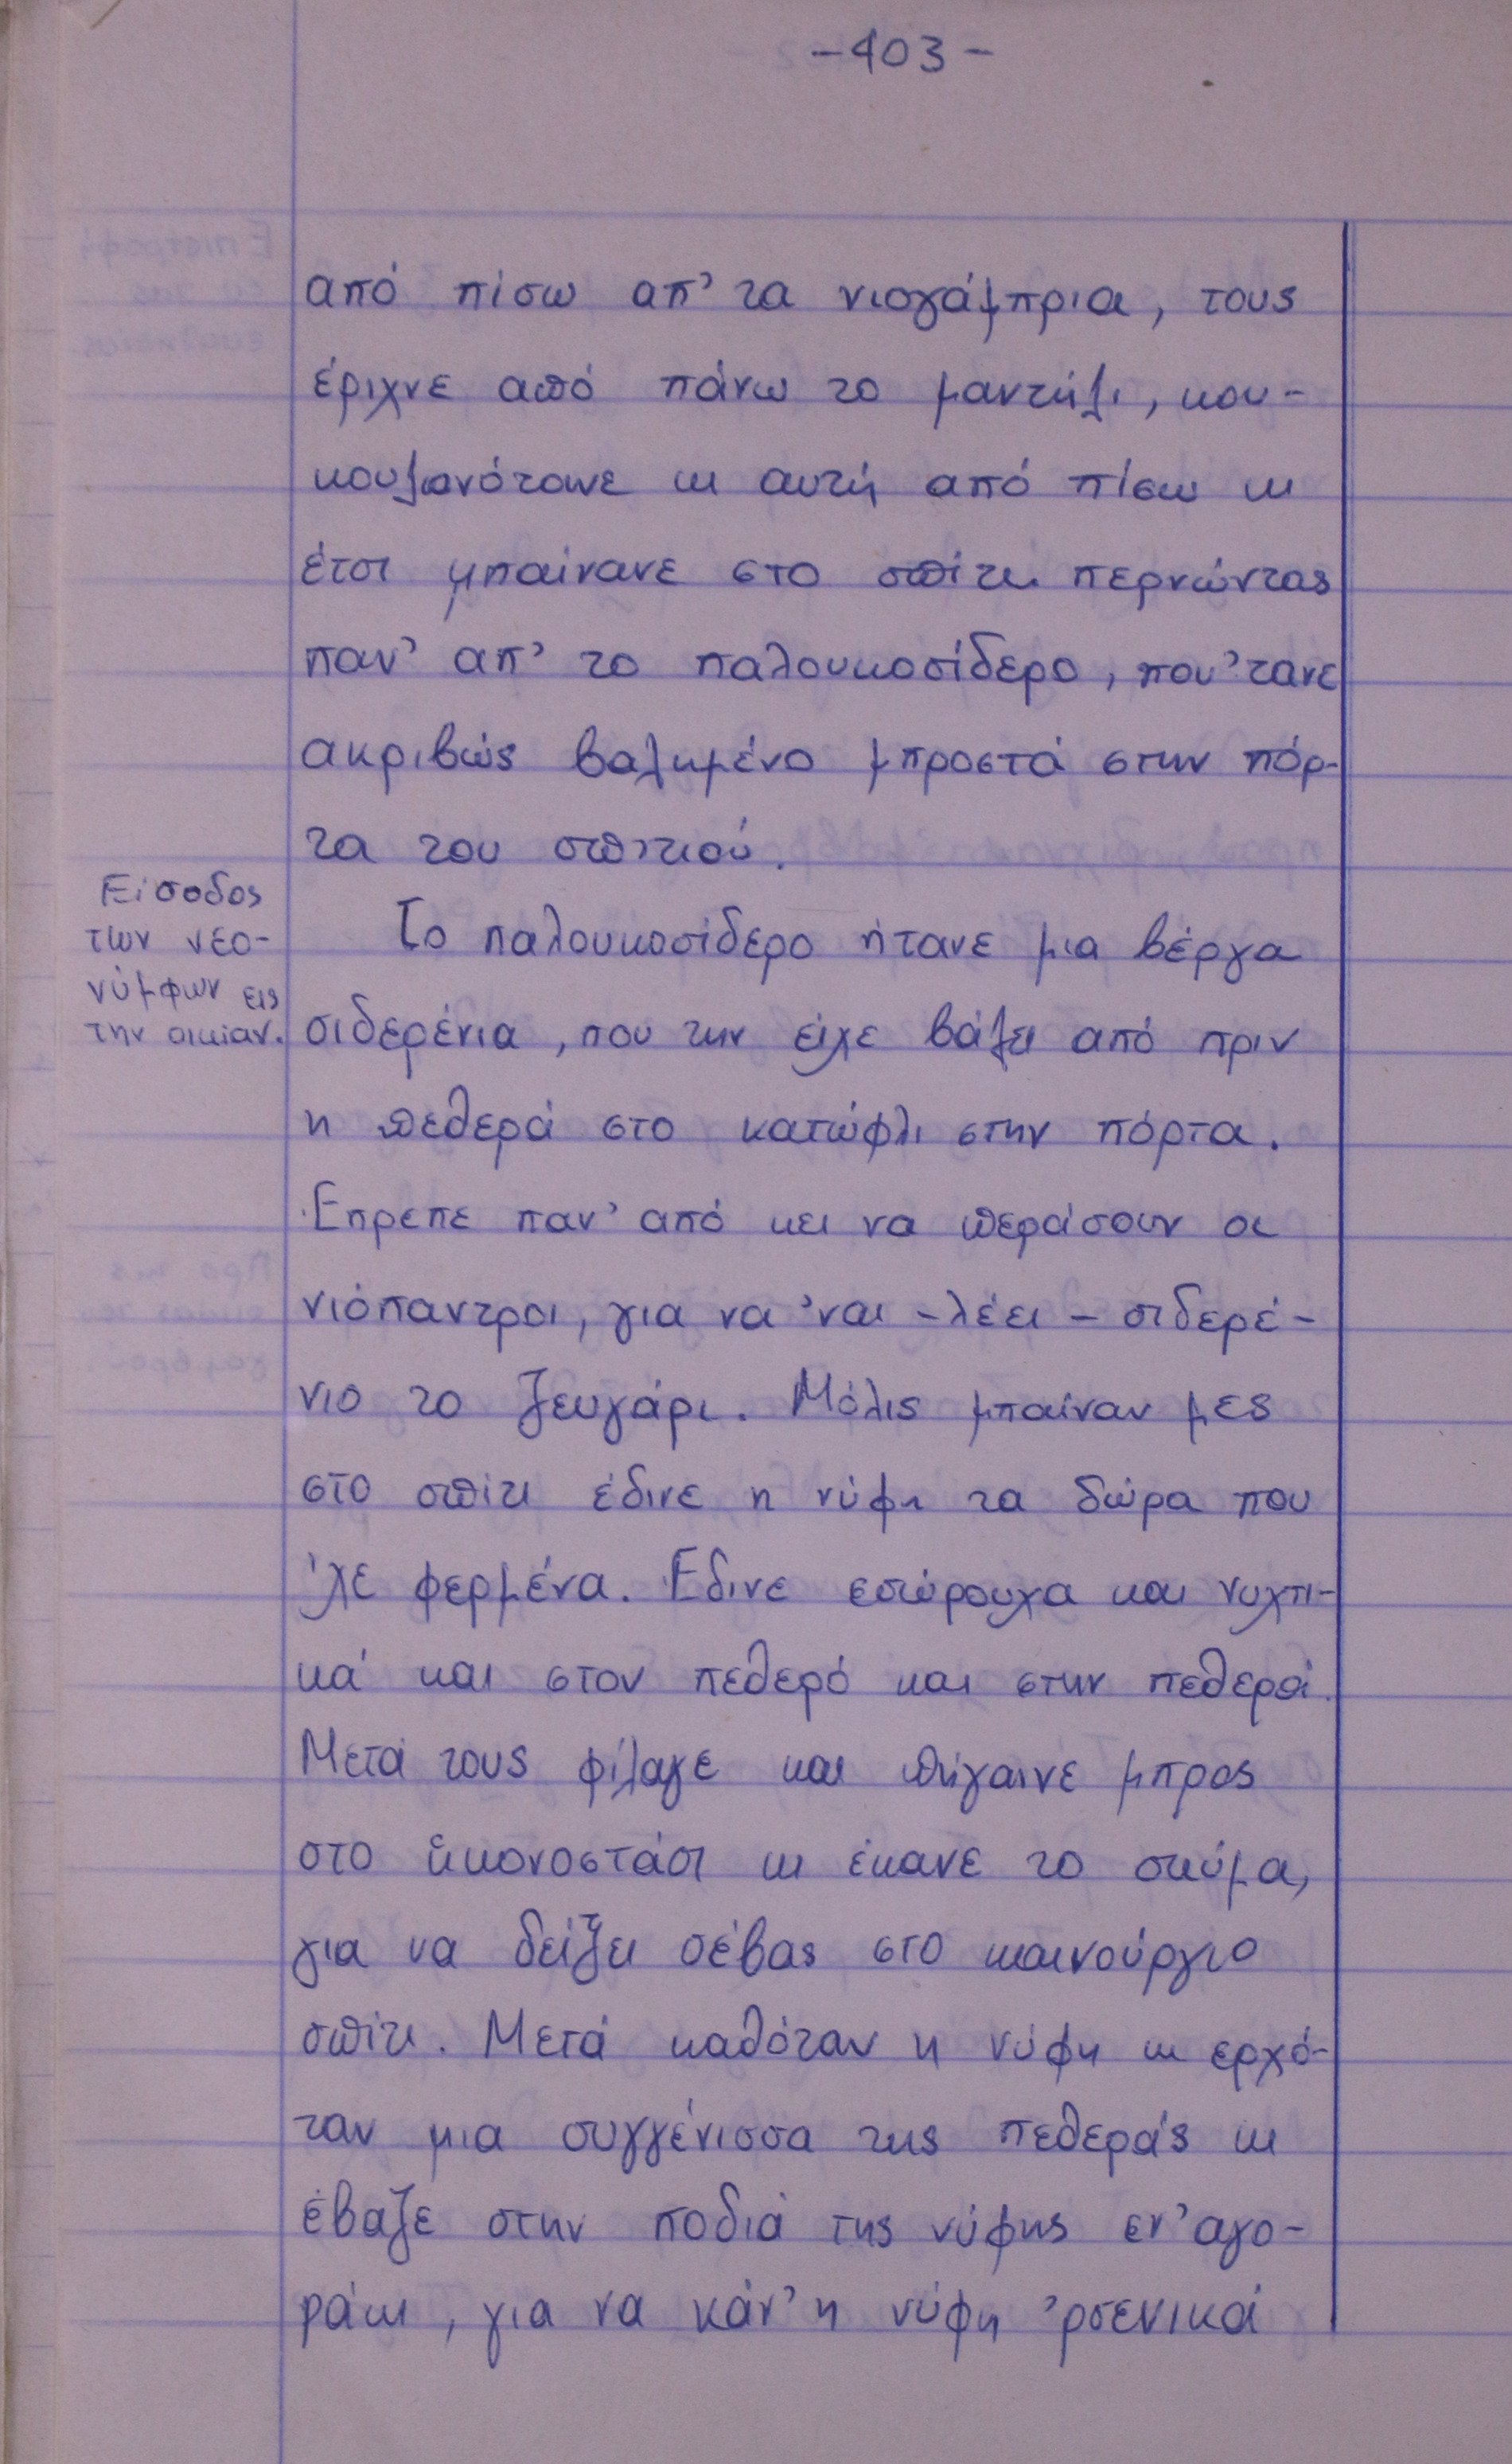 -403-
από πίσω απ' τα νιογάμπρια, τους
έριχνε από πάνω το μαντήλι, κου-
κουλωνότανε κι αυτή από πίσω κι
έτσι μπαίνανε στο σπίτι περνώντας
παν' απ' το παλουκοσίδερο, που 'τανε
ακριβώς βαλημένο μπροστά στην πόρ-
τα του σπιτιού.
Είσοδος
των νεο-
νύμφων εις
την οικίαν.
Το παλουκοσίδερο ήτανε μια βέργα
σιδερένια, που την είχε βάλει από πριν
η πεθερά στο κατώφλι στην πόρτα.
Έπρεπε παν' από κει να περάσουν οι
νιόπαντροι, για να 'ναι - λέει - σιδερέ-
νιο το ζευγάρι. Μόλις μπαίναν μες
στο σπίτι έδινε η νύφη τα δώρα που
'χε φερμένα. Έδινε εσώρουχα και νυχτι-
κά και στον πεθερό και στην πεθερά.
Μετά τους φίλαγε και πήγαινε μπρος
στο εικονοστάσι κι έκανε το σκύμα,
για να δείξει σέβας στο καινούργιο
σπίτι. Μετά καθόταν η νύφη κι ερχό-
ταν μια συγγένισσα της πεθεράς κι
έβαζε στην ποδιά της νύφης εν' αγο-
ράκι, για να κάν' η νύφη 'ρσενικά